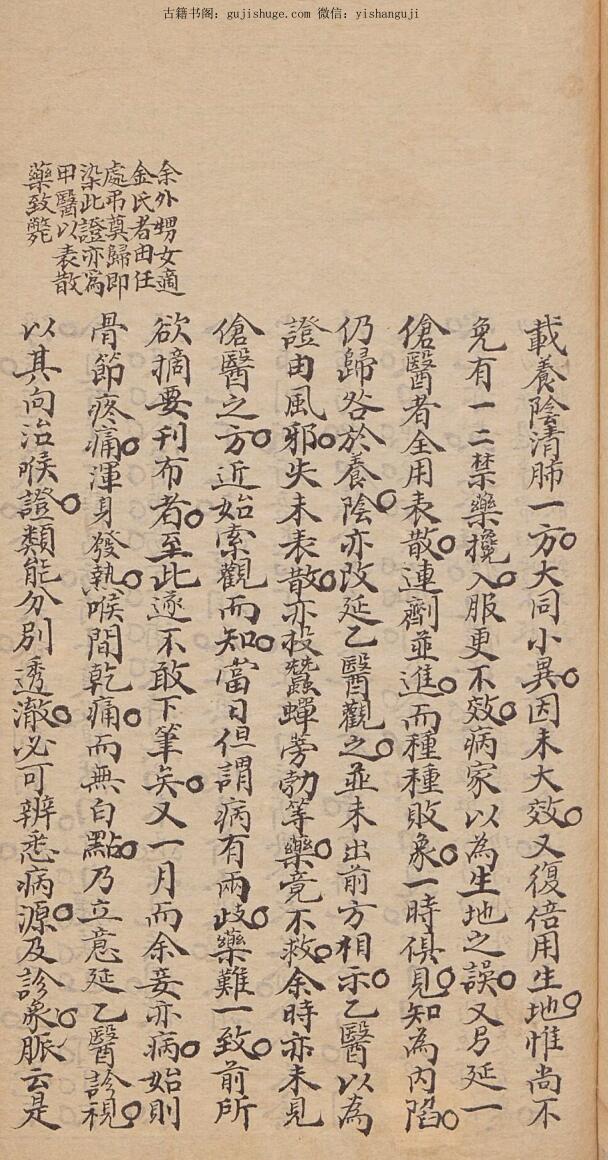 古籍书阁：gujishuge.com 微信：yishanguji
余外甥女適
金氏者由任
處弔奠歸即
染此證亦爲
甲醫以表散
藥致斃
載養陰清肺一方。大同小異。因未大效。又復倍用生地。惟尚不
免有一二禁藥攙入。服更不效。病家以為生地之誤。又另延一
傖醫者。全用表散。連劑並進。而種種敗象。一時俱見。知為內陷。
仍歸咎於養陰。亦改延乙醫觀之。並未出前方相示。乙醫以為
證由風邪。失未表散。亦投蠶蟬蒡勃等藥。竟不救。余時亦未見
傖醫之方。近始索觀而知。當日但謂病有兩歧。藥難一致。前所
欲摘要刊布者。至此遂不敢下筆矣。又一月而余妾亦病。始則
骨節疼痛。渾身發熱。喉間乾痛。而無白點。乃立意延乙醫診視。
以其向治喉證。類能分別透澈。必可辨悉病源。及診象脈。云是